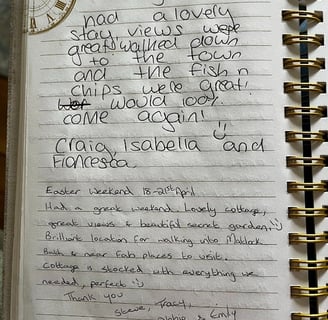 had a lovely
stay views were
great! walked down
to the town
and the fish n
chips were great!
would 100%
come again!
Craig, Isabella and
Francesca
Easter Weekend 18-21st April
Had a great weekend. Lovely cottage,
great views & beautiful secret garden,
Brilliant location for walking into Matlock
Bath & near fab places to visit.
Cottage is stocked with everything we
needed, perfect
Thank you
Steve, Tracy,
& Emily